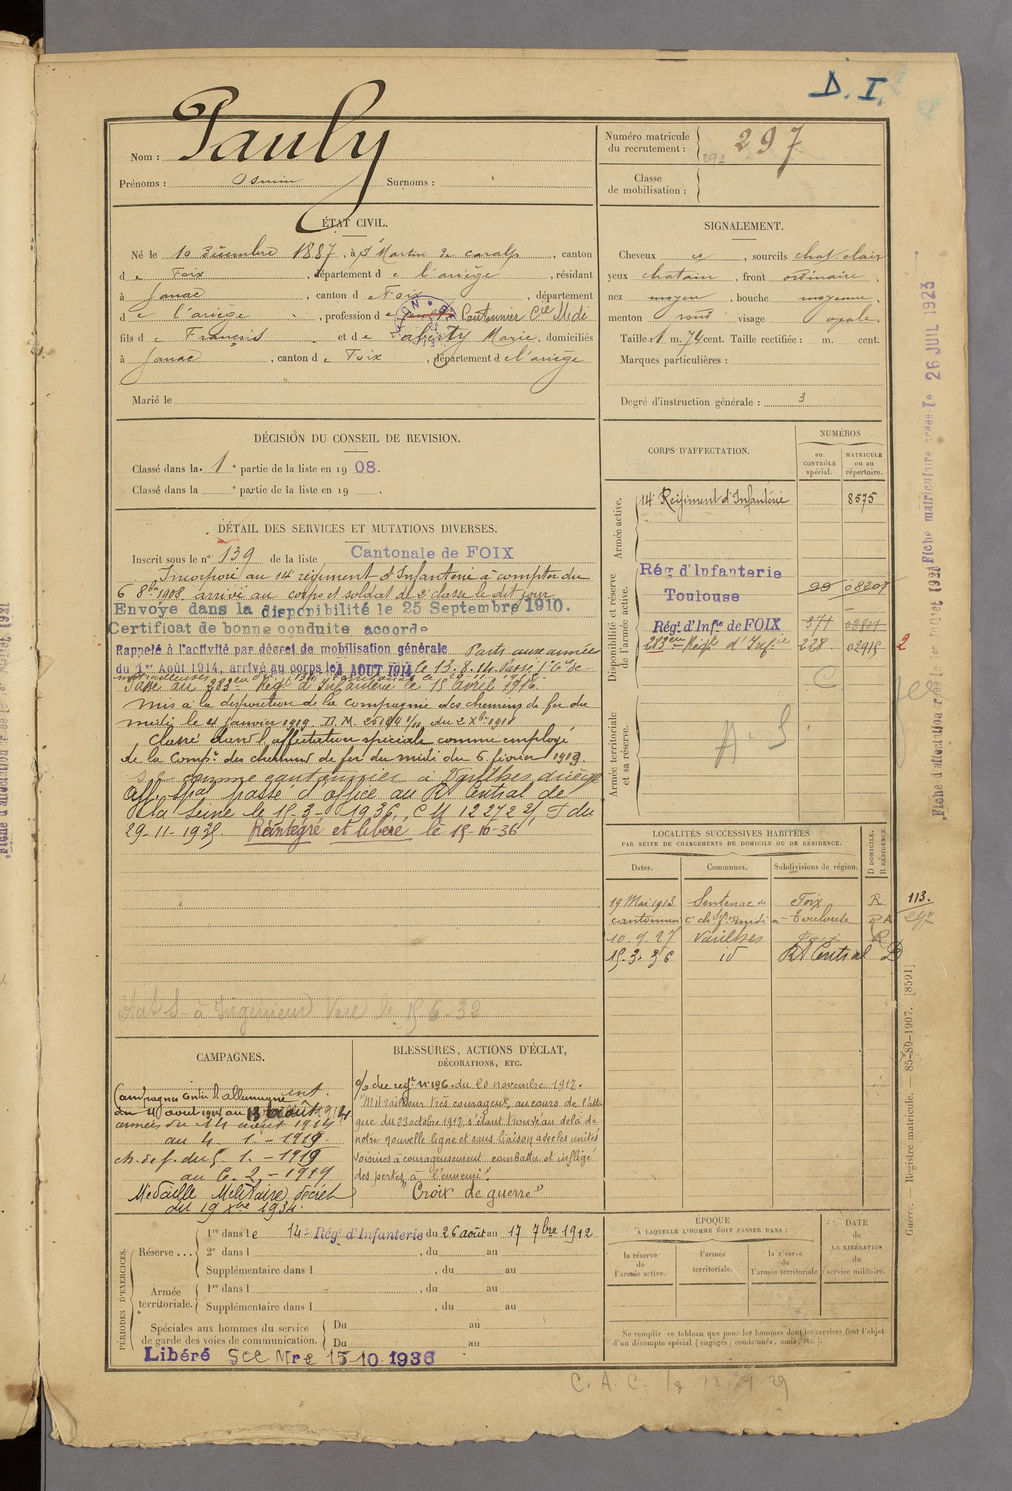 D. I.
Nom : Pauly
Prénoms : Osmin Surnoms :
Numéro matricule du recrutement : 297
Classe de mobilisation :
ÉTAT CIVIL.
Né le 10 Décembre 1887, à St Martin de Caralp, canton
de Foix, département de l'ariège, résidant
à Ganac, canton de Foix, département
de l'ariège, profession de Cantonnier Cie Midi
fils de Francois et de Marie, domiciliés
à Ganac, canton de Foix, département de l'ariège
Marié le
SIGNALEMENT.
Cheveux et, sourcils chat. clair
yeux chatain, front ordinaire,
nez moyen, bouche moyenne,
menton rond visage ovale.
Taille : 1 m. 74 cent. Taille rectifiée : m. cent.
Marques particulières :
Degré d'instruction générale : 3
DÉCISION DU CONSEIL DE REVISION.
Classé dans la 1e partie de la liste en 1908.
Classé dans la e partie de la liste en 19 .
CORPS D'AFFECTATION.
NUMÉROS
au CONTRÔLE spécial.
MATRICULE ou au répertoire.
Armée active.
14e Régiment d'Infanterie 8575
Disponibilité et réserve de l'armée active.
Rég d'Infanterie
Toulouse
Rég. d'Infie de FOIX
283eme Regt d'Infie 228 02415 2
Armée territoriale et sa réserve.
A. S.
DÉTAIL DES SERVICES ET MUTATIONS DIVERSES.
Inscrit sous le n° 139 de la liste Cantonale de FOIX
Incorporé au 14e régiment d'Infanterie à compter du
6 8bre 1908 arrivé au corps et soldat de 2e classe le dit jour
Envoyé dans la disponibilité le 25 Septembre 1910.
Certificat de bonne conduite accordé
Rappelé à l'activité par décret de mobilisation générale Parti aux armées
du 1er Août 1914, arrivé au corps le 4 AOUT 1914 le 13.8.14
Passé au 283e Regt d'Infanterie le 15 avril 1916.
Mis à la disposition de la Compagnie des chemins de fer du
midi le 4 Janvier 1919 D.M. du 2 Xbre 1918
Classé dans l'affectation spéciale comme employé
de la Comp. des chemins de fer du midi du 6 février 1919.
comme cantonnier à Varilhes ariège
Aff. spal passé d'office au Rt Central de
la Seine le 15-3-1936, CM 12272 du
29-11-1935. Réintégré et libéré le 15-10-36
le 15-6-32
LOCALITÉS SUCCESSIVES HABITÉES
PAR SUITE DE CHANGEMENTS DE DOMICILE OU DE RÉSIDENCE.
Dates. Communes. Subdivisions de région. D DOMICILE. R RÉSIDENCE.
19 Mai 1913 Sentenac de Foix R 113.
cantonnier ch. fer midi Toulouse
10-9-27 Varilhes Foix R
15.3.36 id Rt Central D
CAMPAGNES.
Campagnes contre l'allemagne int.
du 4 août 1914 au 13 août 1914
armées du 14 aout 1914
au 4. 1. - 1919.
ch. de f. du 5 1. - 1919
au 6. 2. - 1919
Médaille Militaire, décret
du 19 Xbre 1934.
BLESSURES, ACTIONS D'ÉCLAT,
DÉCORATIONS, ETC.
o/ du regt n° 196 du 20 novembre 1917.
"Mitrailleur très courageux, au cours de l'atta-
que du 23 octobre 1917 s'étant trouvé au delà de
notre nouvelle ligne et sans liaison avec les unités
voisines a courageusement combattu et infligé
des pertes à l'ennemi".
"Croix de guerre"
PÉRIODES D'EXERCICES.
Réserve...
1re dans le 14e Rég. d'Infanterie du 26 août au 17 7bre 1912
2e dans l , du au
Supplémentaire dans l , du au
Armée territoriale.
1re dans l , du au
Supplémentaire dans l , du au
Spéciales aux hommes du service de garde des voies de communication.
Du au
Du au
Libéré Sce Mre 15 10 1936
ÉPOQUE
À LAQUELLE L'HOMME DOIT PASSER DANS :
la réserve de l'armée active.
l'armée territoriale.
la réserve de l'armée territoriale
DATE DE LA LIBÉRATION du service militaire.
Ne remplir ce tableau que pour les hommes dont les services font l'objet
d'un décompte spécial (engagés, condamnés, omis, etc.).
Guerre. — Registre matricule. — 85-89-1907. [8591]
Fiche matriculaire créée le 26 JUIL 1923
C. A. C. le